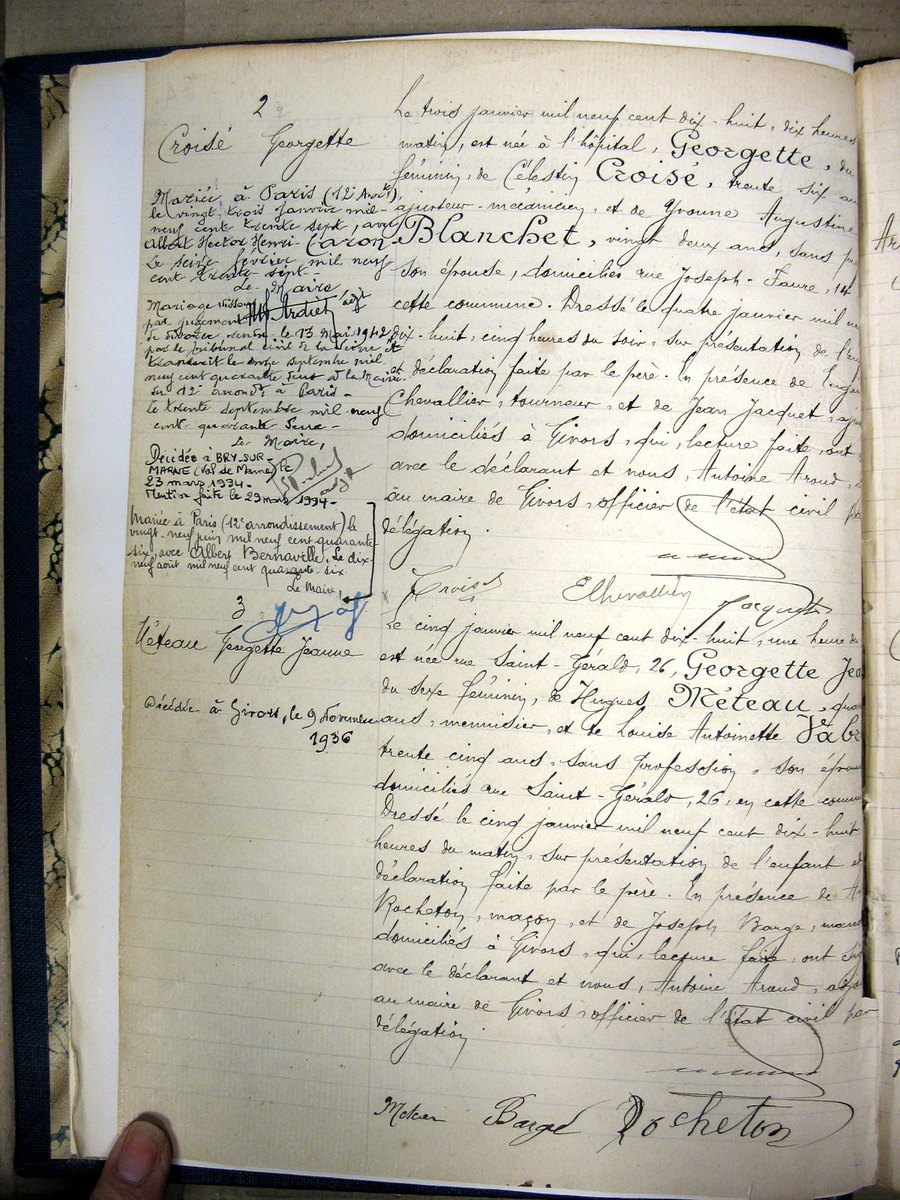 2
Croisé Georgette
Mariée à Paris (12e Arrt)
le vingt trois janvier mil
neuf cent trente sept, avec
Albert Hector Henri Caron
Le seize février mil neuf
cent trente sept.
Le Maire,
Mariage dissous
par jugement
de divorce rendu le 13 Mai 1942
par le tribunal civil de la Seine et
transcrit le onze septembre mil
neuf cent quarante deux à la Mairie
du 12e arrondt à Paris
le trente septembre mil neuf
cent quarante
Le Maire,
Décédée à BRY-SUR-
MARNE (Val de Marne) le
23 mars 1994.
Mention faite le 29 mars 1994.
Mariée à Paris (12e arrondissement) le
vingt-neuf juin mil neuf cent quarante
six, avec Albert Bernaville. Le dix-
neuf août mil neuf cent quarante-six.
Le Maire,
Le trois janvier mil neuf cent dix-huit, dix heures
matin, est née à l'hôpital, Georgette, du
féminin, de Célestin Croisé, trente six ans
ajusteur-mécanicien, et de Yvonne Augustine
Blanchet, vingt deux ans, sans
son épouse, domiciliés rue Joseph-Faure, 14
cette commune. Dressé le quatre janvier mil
dix-huit, cinq heures du soir, sur présentation de
et déclaration faite par le père. En présence de
Chevallier, tourneur, et de Jean Jacquet,
domiciliés à Givors, qui, lecture faite, ont
avec le déclarant et nous, Antoine Araud,
au maire de Givors, officier de l'état civil
délégation.
Croisé EChevallier Jacquet
3
Méteau Georgette Jeanne
Décédée à Givors, le 9 Novembre
1936
Le cinq janvier mil neuf cent dix-huit, une heure du
est née rue Saint-Gérald, 26, Georgette
du sexe féminin, de Hugues Méteau,
ans, menuisier, et de Louise Antoinette
trente cinq ans, sans profession, son
domiciliés rue Saint-Gérald, 26, en cette
Dressé le cinq janvier mil neuf cent dix-huit
heures du matin, sur présentation de l'enfant et
déclaration faite par le père. En présence de
Rocheton, maçon, et de Joseph Barge,
domiciliés à Givors, qui, lecture faite, ont
avec le déclarant et nous, Antoine Araud,
au maire de Givors, officier de l'état civil par
délégation.
Méteau Barge Rocheton